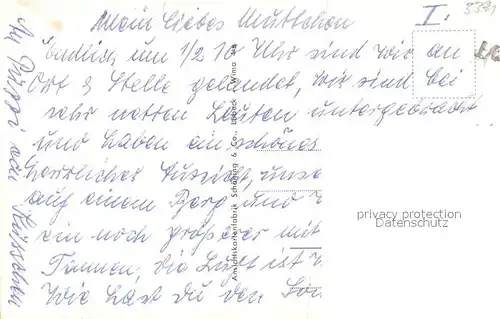 Mein liebes Muttchen
I:
3321
Endlich, um 1/2 10 Uhr sind wir an
Ort & Stelle gelandet, wir sind bei
sehr netten Leuten untergebracht
und haben ein schönes
herrlicher Aussicht, unse
auf einem Berg und
ein noch größerer mit
Tannen, die Luft ist
Wie hast du den
An Püppi ein Küsschen
Ansichtskartenfabrik Schöning & Co., Lübeck
privacy protection
Datenschutz